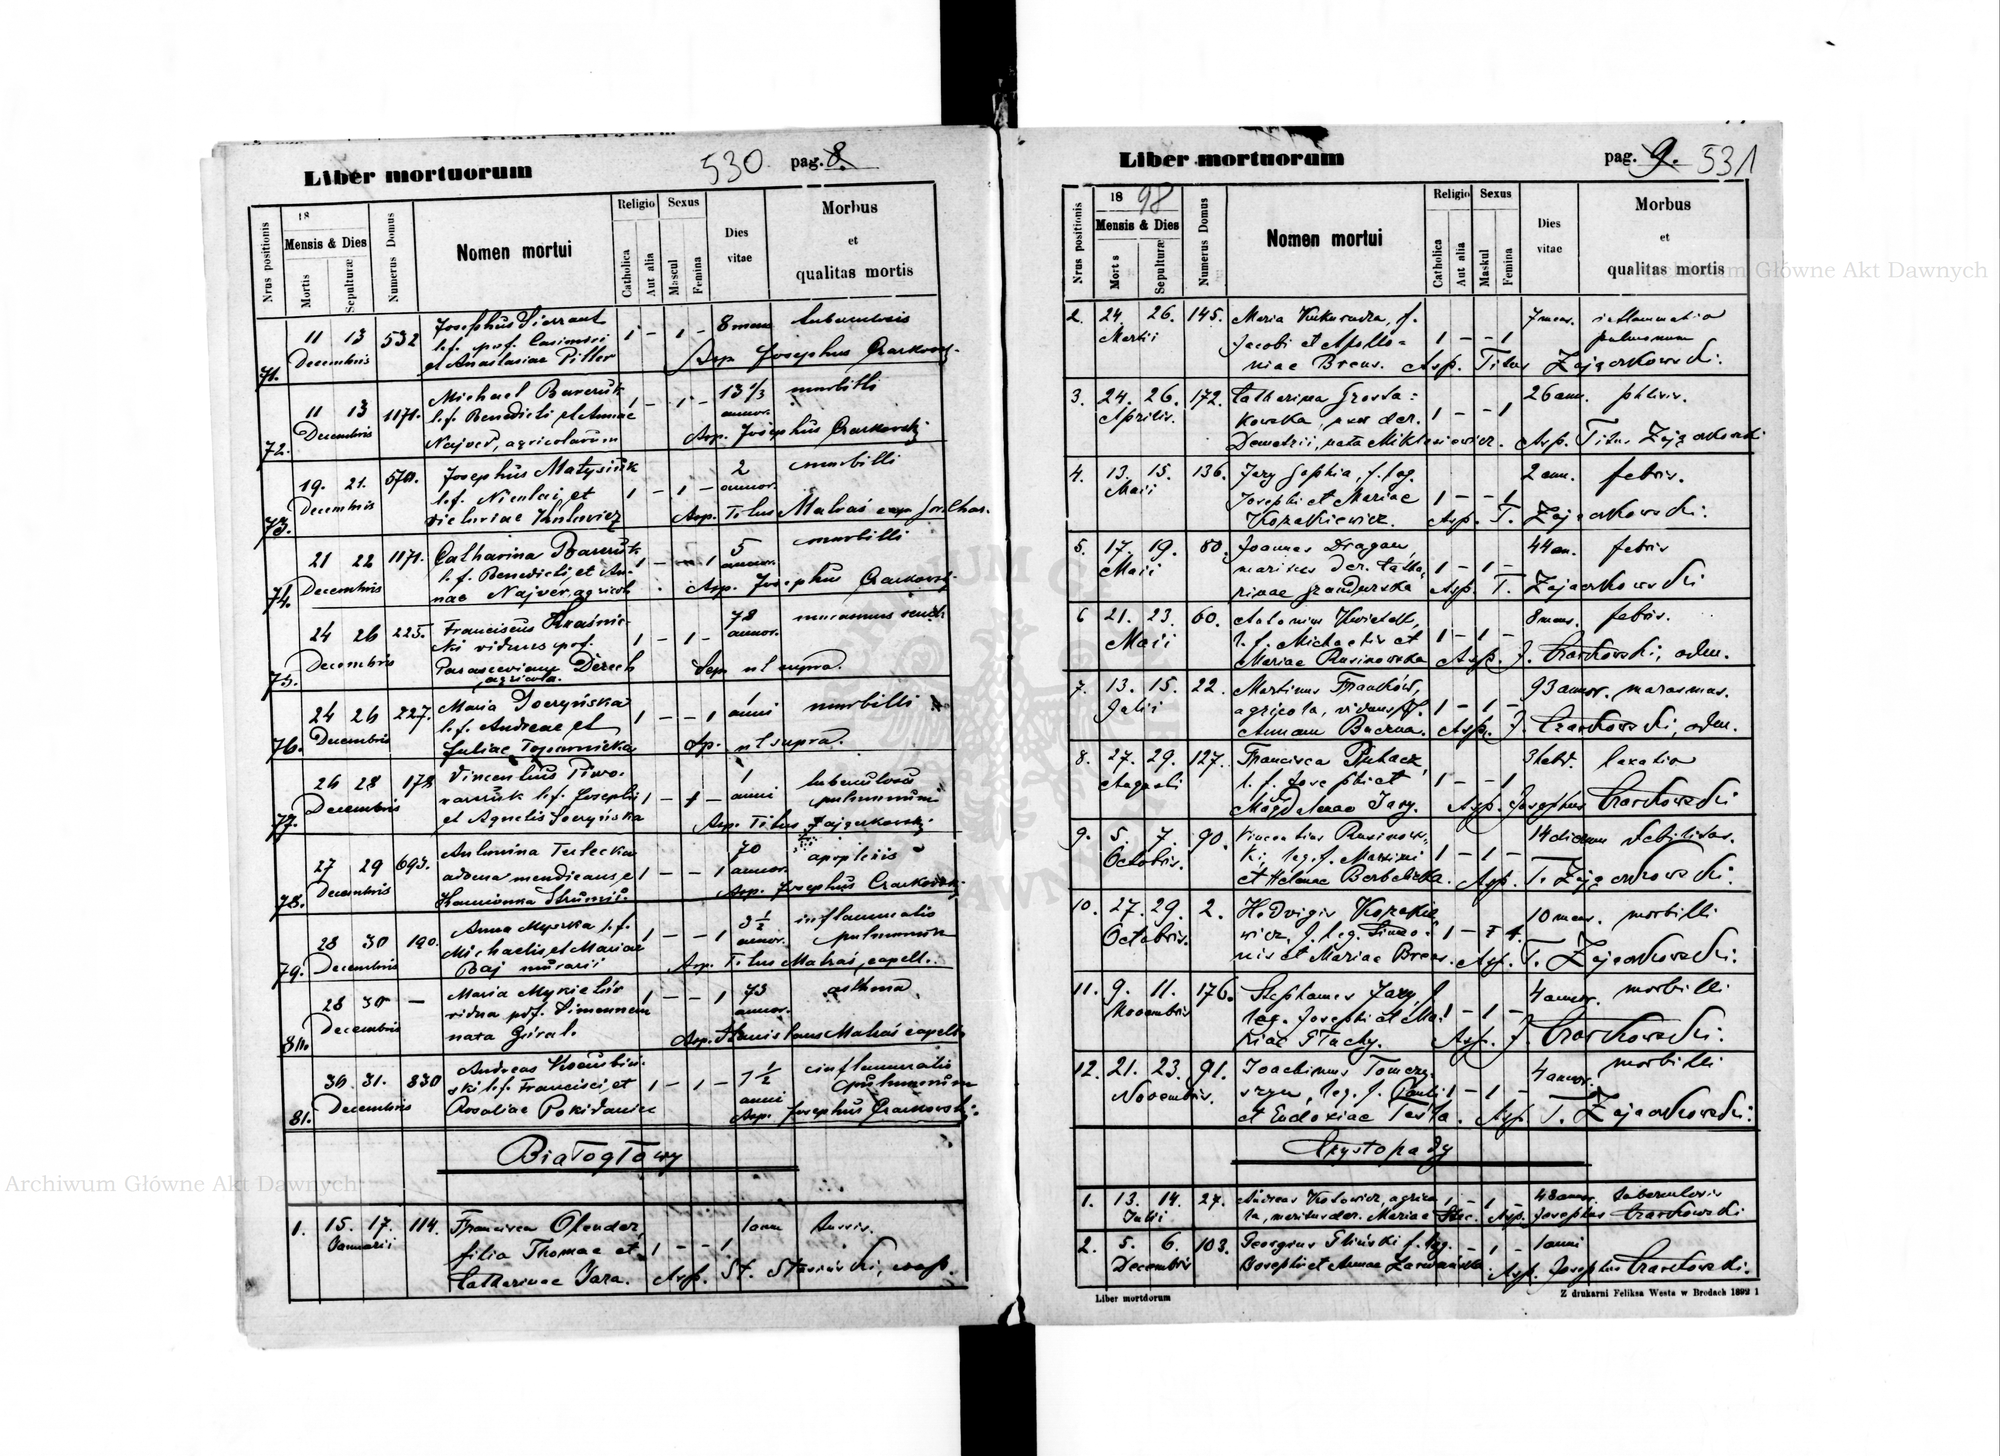 Liber mortuorum 530 pag. 8.
Nrus positionis
18
Mensis & Dies
Mortis
Sepulturæ
Numerus Domus
Nomen mortui
Religio
Catholica
Aut alia
Sexus
Mascul
Femina
Dies vitae
Morbus
et
qualitas mortis
71. 11 13 Decembris 532
Josephus
l.f. Casimiri
et Anastasiae Piller
1 – 1 –
8 mens. tuberculosis
Asp. Josephus Czarkowski
72. 11 13 Decembris 1171.
Michael Bareruk
l.f. Benedicti et Annae
Najver, agricolarum
1 – 1 –
13 1/3 annor. morbilli
Asp. Josephus Czarkowski
73. 19. 21. Decembris
Josephus Matysiuk
l.f. Nicolai, et
Victoriae
1 – 1 –
2 annor. morbilli
Asp. Titus Matras
74. 21 22 Decembris 1171.
Catharina Bareruk
l.f. Benedicti, et An-
nae Najver, agricol.
1 – – 1
5 annor. morbilli
Asp. Josephus Czarkowski
75. 24 26 Decembris 225.
Franciscus Kraśnic-
ki viduus
Derech
agricola.
1 – 1 –
78 annor. marasmus senilis
Sep. ut supra.
76. 24 26 Decembris 227.
Maria
l.f. Andreae et
Juliae
1 – – 1
1 anni morbilli
Ap. ut supra.
77. 26 28 Decembris 178
Vincentius Piwo-
warczuk l.f. Josephi
et Agnetis
1 – 1 –
1 anni tuberculosis
pulmonum
Asp. Titus Zajączkowski
78. 27 29 Decembris 693.
Antonina Turlecka
mendicans, e
Kamionka Strumił.
1 – – 1
70 annor. apoplexis
Asp. Josephus Czarkowski
79. 28 30 Decembris 190.
Anna Myszka l.f.
Michaelis, et Mariae
Baj murarii
1 – – 1
3 1/2 annor. inflammatio
pulmonum
Asp. Titus Matras, capell.
80. 28 30 Decembris –
Maria
vidua
nata Góral.
1 – – 1
73 annor. asthma
Asp. Stanislaus Matras capell.
81. 30. 31. Decembris 830
Andreas Kociubiń-
ski l.f. Francisci, et
Rosaliae Pokidaniec
1 – 1 –
1 1/2 anni inflammatio
pulmonum
Asp. Josephus Czarkowski
Białogłowy
1. 15. 17. Januarii 114.
Francisca Olender,
filia Thomae et
Catharinae Jara.
1 – – 1
1 ann. tussis.
Asp. St.
Liber mortuorum pag. 9. 531
Nrus positionis
1898
Mensis & Dies
Mortis
Sepulturæ
Numerus Domus
Nomen mortui
Religio
Catholica
Aut alia
Sexus
Maskul
Femina
Dies vitae
Morbus
et
qualitas mortis
2. 24. 26. Martii 145.
Maria Kukurudza, f.
Jacobi et Apollo-
niae Breus.
1 – – 1
7 mens. inflammatio
pulmonum
Asp. Titus Zajączkowski.
3. 24. 26. Aprilis. 172.
Catharina Grosza-
kowska, uxor der.
Demetrii, nata Miklasiewicz.
1 – – 1
26 ann. phtisis.
Asp. Titus Zajączkowski
4. 13. 15. Maii 136.
Jary Sophia, f. leg.
Josephi et Mariae
Kozakiewicz.
1 – – 1
2 ann. febris.
Asp. T. Zajączkowski.
5. 17. 19. Maii 80.
Joannes Dragan,
maritus der. Catha-
rinae
1 – 1 –
44 an. febris
Asp. T. Zajączkowski
6 21. 23. Maii 60.
Antonius
l. f. Michaelis et
Mariae Rusinowska
1 – 1 –
8 mens. febris.
Asp. J. Czarkowski, adm.
7. 13. 15. Julii 22.
Martinus Franków,
agricola, viduus p.
Annam Buczma.
1 – 1 –
93 annor. marasmus.
Asp. J. Czarkowski, adm.
8. 27. 29. Augusti 127.
Francisca Puhacz,
l. f. Josephi et
Magdalenae Jary.
1 – – 1
3 hebd. laxatio
Asp. Josephus Czarkowski
9. 5. 7. Octobris. 90.
Vincentius Rusinows-
ki, leg. f. Martini
et Helenae
1 – 1 –
14 dierum debilitas.
Asp. T. Zajączkowski.
10. 27. 29. Octobris. 2.
Hedvigis Kozakie-
wicz, f. leg. Simeo-
nis et Mariae Breus.
10 mens. morbilli
Asp. T. Zajączkowski.
11. 9. 11. Novembris 176.
Stephanus Jary, f.
leg. Josephi et Ma-
riae Tłachy.
1 – 1 –
4 annor. morbilli
Asp. J. Czarkowski.
12. 21. 23. Novembris. 91.
Joachimus Tomczy-
szyn, leg. f. Pauli
et Eudoxiae Tesla.
1 – 1 –
4 annor. morbilli
Asp. T. Zajączkowski.
Czystopady
1. 13. 14. Julii 27.
Andreas Kotowicz, agrico-
la, maritus der. Mariae
1 – 1 –
48 annor. tuberculosis
Asp. Josephus Czarkowski
2. 5. 6. Decembris 103.
Georgius Gliński f. leg.
Josephi et Annae
– 1 –
1 anni
Asp. Josephus Czarkowski.
Liber mortdorum
Z drukarni Feliksa Westa w Brodach 1892 1
Archiwum Główne Akt Dawnych
Archiwum Główne Akt Dawnych